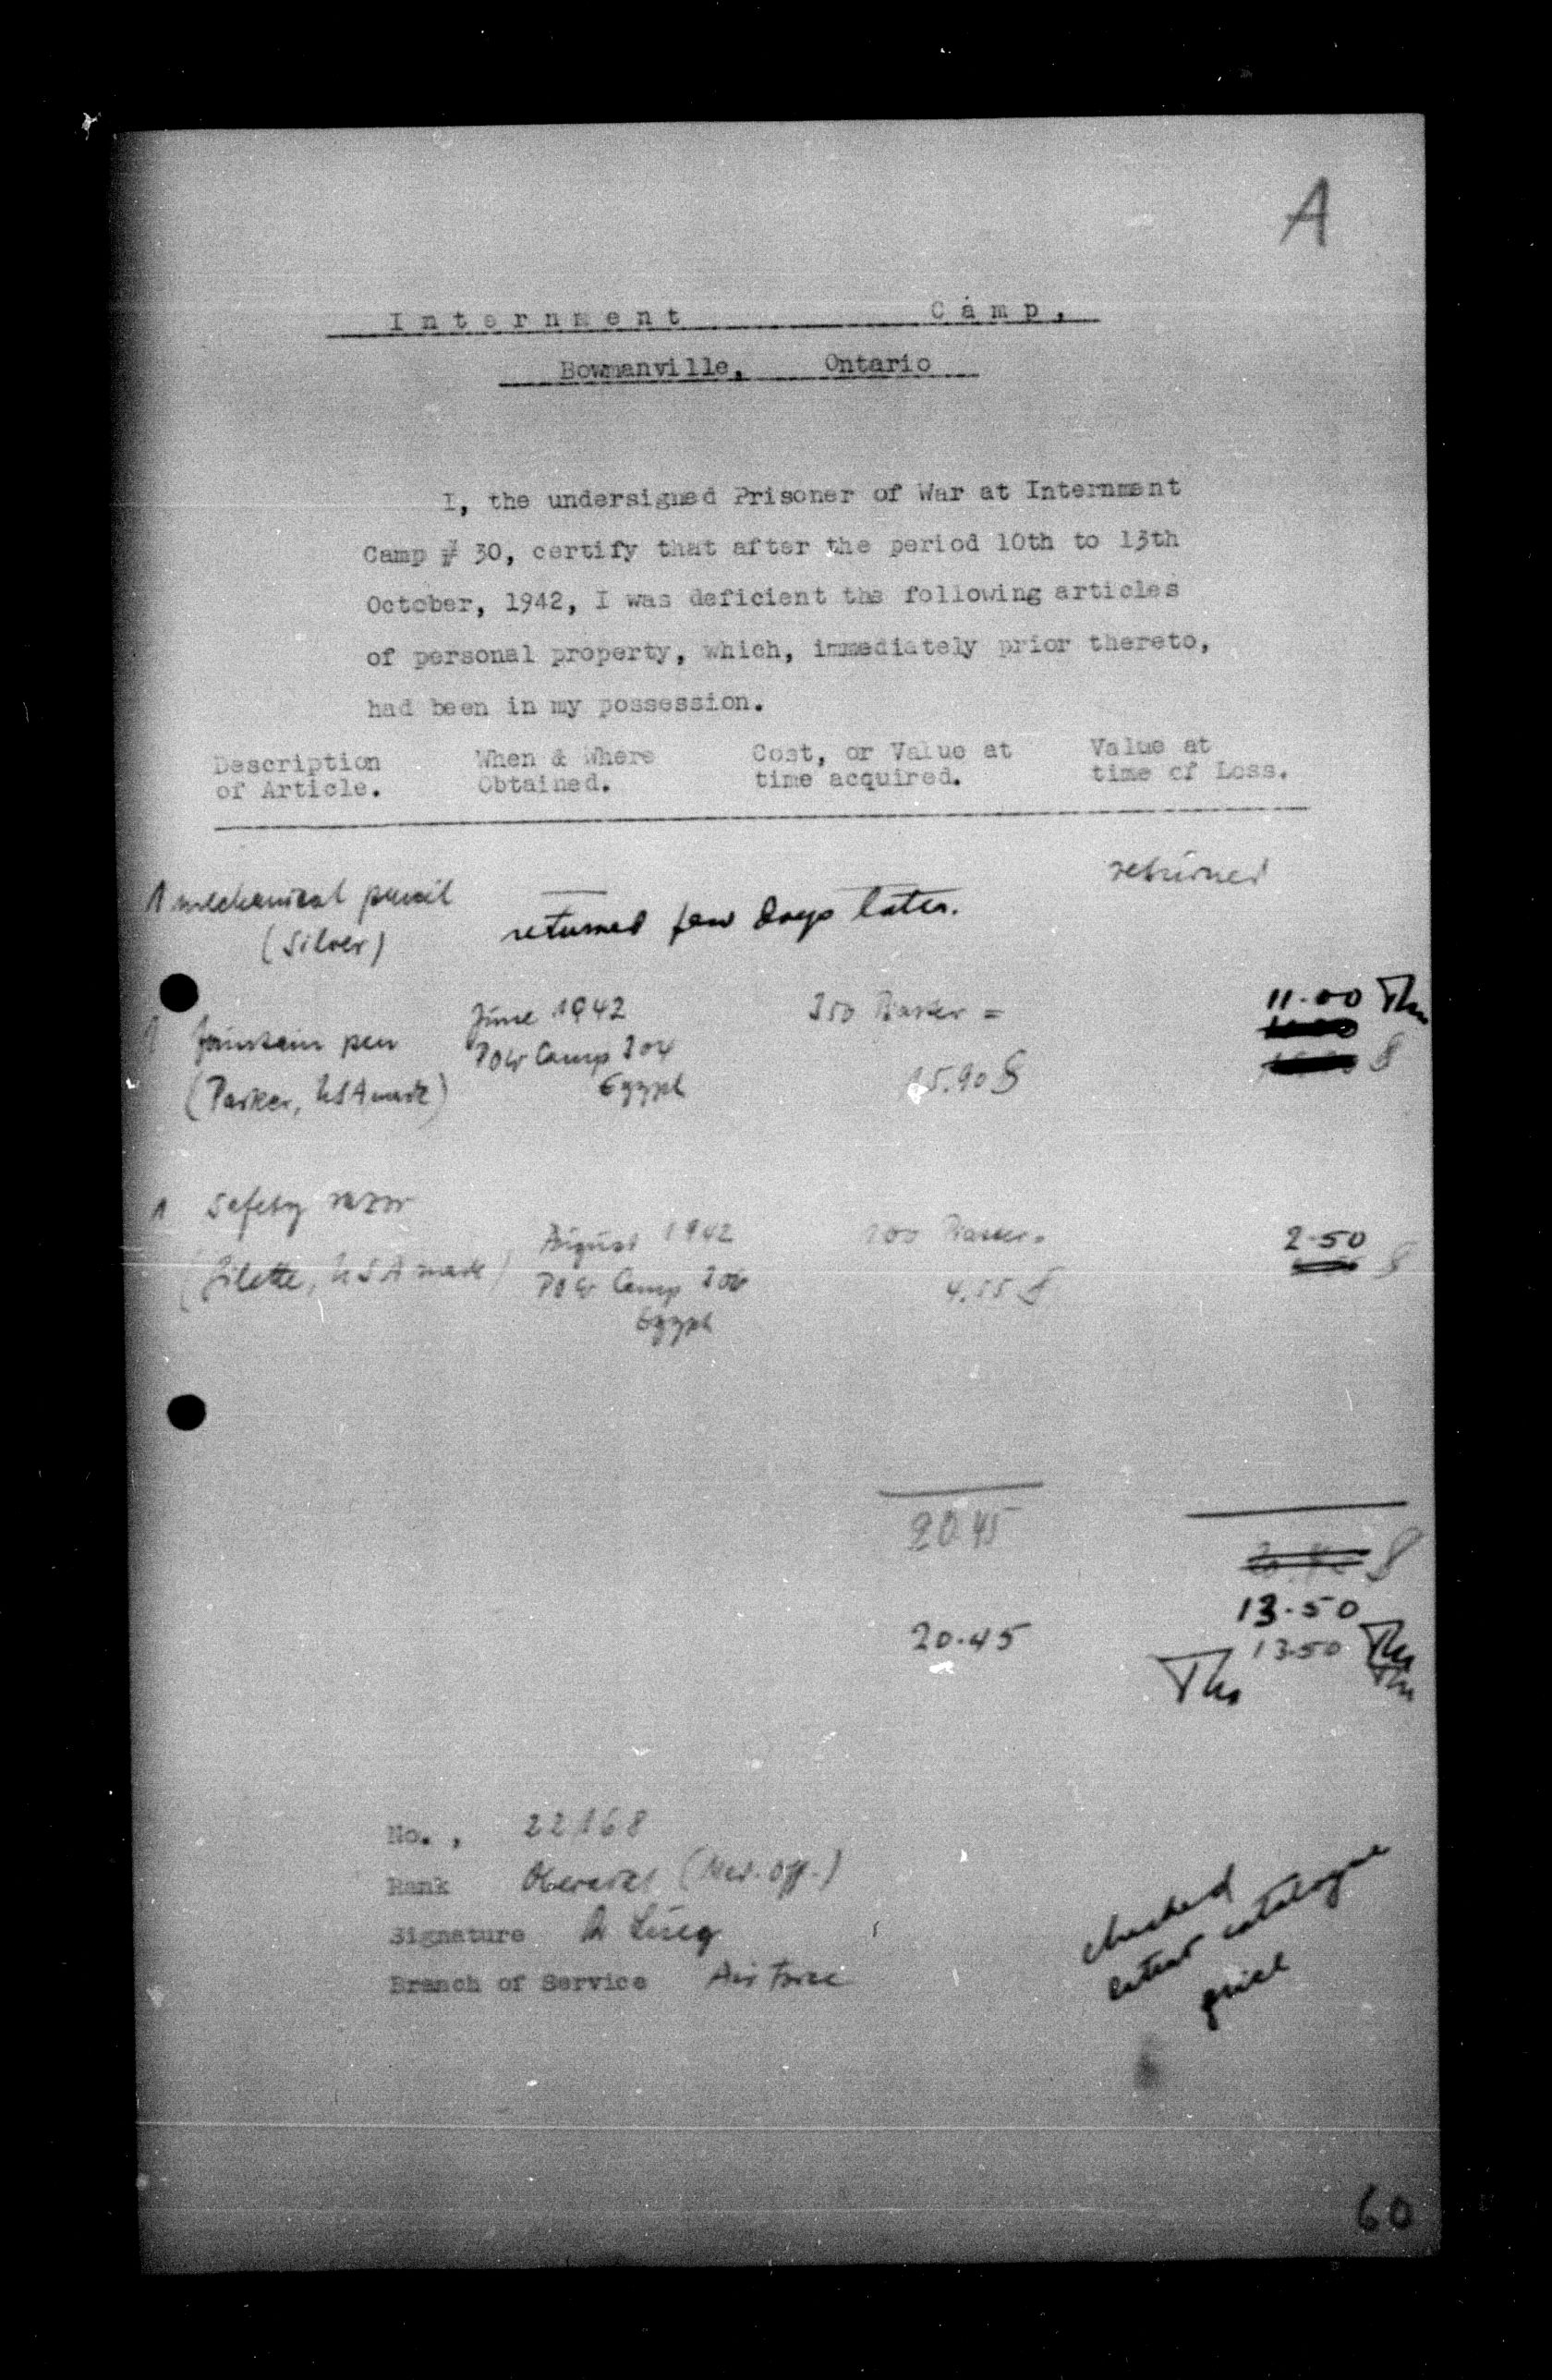 A
Internment Camp,
Bowmanville, Ontario
I, the undersigned Prisoner of War at Internment
Camp # 30, certify that after the period 10th to 13th
October, 1942, I was deficient the following articles
of personal property, which, immediately prior thereto,
had been in my possession.
Description of Article. When & Where Obtained. Cost, or Value at time acquired. Value at time of Loss.
1 mechanical pencil returned
(Silver) returned few days later.
1 fountain pen June 1942 350 Piaster = 11.00
(Parker, USA made) POW Camp 304 $
Egypt 15.90 $
1 Safety razor
August 1942 100 Piaster = 2.50
(Gilette, USA made) POW Camp 306 4.55 $ $
Egypt
20.45
$
13.50
20.45 13.50
No., 22168
Rank Oberarzt (Med. Off.)
Signature
Branch of Service Air Force
checked
latest catalogue
price
60